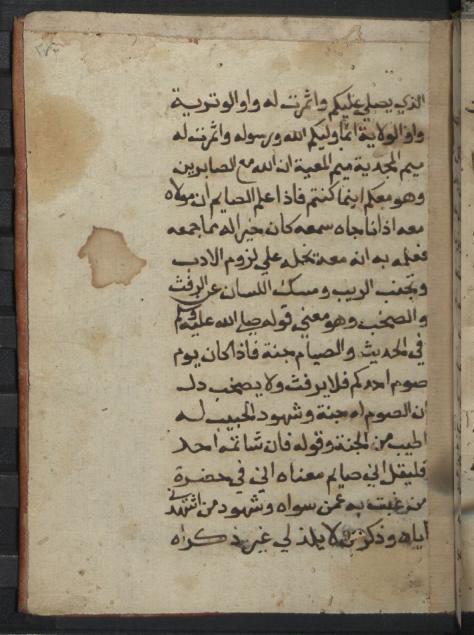 الذي يصلي عليكم واثمرت له واو الوترية
واو الولاية انما وليكم الله ورسوله واثمرت له
ميم المحدية ميم المعية ان الله مع الصابرين
وهو معكم اينما كنتم فاذا علم الصايم ان مولاه
معه اذا ناجاه سمعه كان خير اله مما جمعه
فعلمه به انه معه تحمله علي لزوم الادب
وتجنب الريب ومسك اللسان عن الرفث
والصخب وهو معني قوله صلي الله عليه وسلم
في الحديث والصيام جنة فاذا كان يوم
صوم احدكم فلا يرفث ولا يصخب دل
ان الصوم له جنة وشهود الحبيب له
اطيب من الجنة وقوله فان شاتمه احد
فليقل اني صايم معناه اني في حضرة
من غبت به عمن سواه وشهود من اشهدني
اياه وذكر من لا يلذ لي غير ذكراه